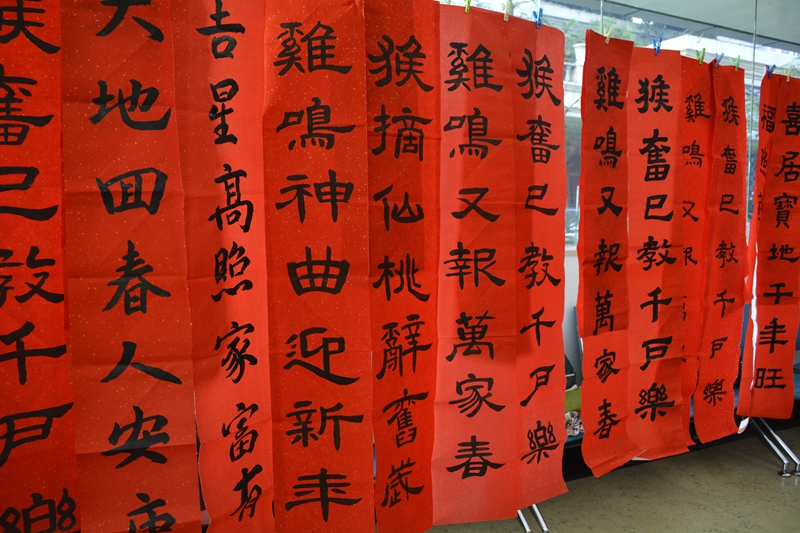 喜居寶地千年旺
福
猴奮已教千戶樂
雞鳴又報
猴奮已教千戶樂
雞鳴又報萬家春
猴奮已教千戶樂
雞鳴又報萬家春
猴摘仙桃辭舊歲
雞鳴神曲迎新年
吉星高照家富有
大地囬春人安康
猴奮已教千戶樂